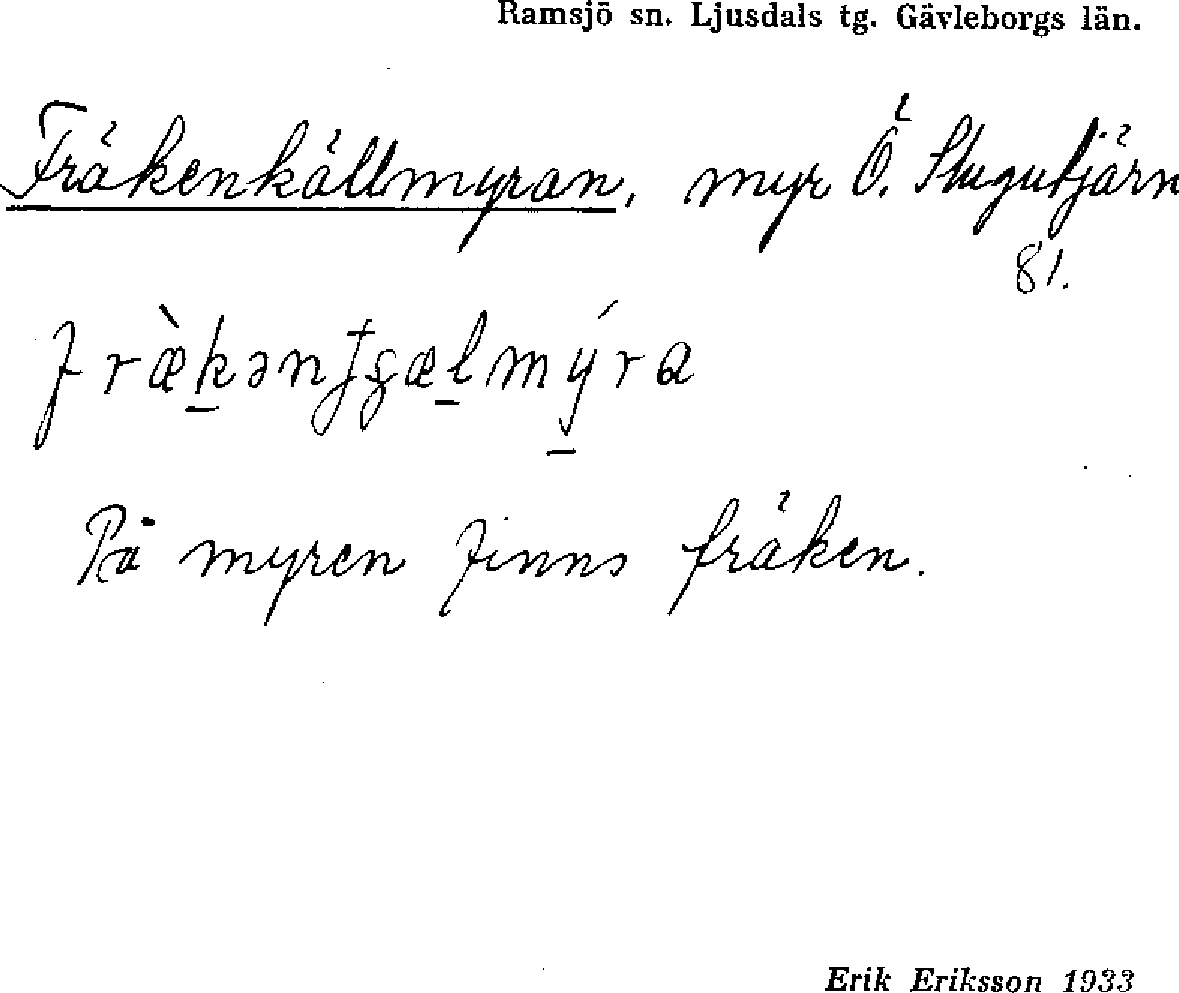 Ramsjö sn. Ljusdals tg. Gävleborgs län.
Fräkenkällmyran, myr Ö. Stugutjärn
81.
På myren finns fräken.
Erik Eriksson 1933